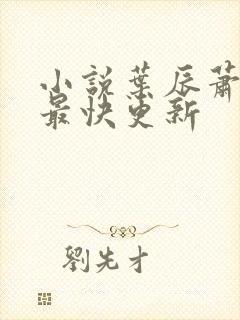 小説葉辰蕭
最快更新
劉先才